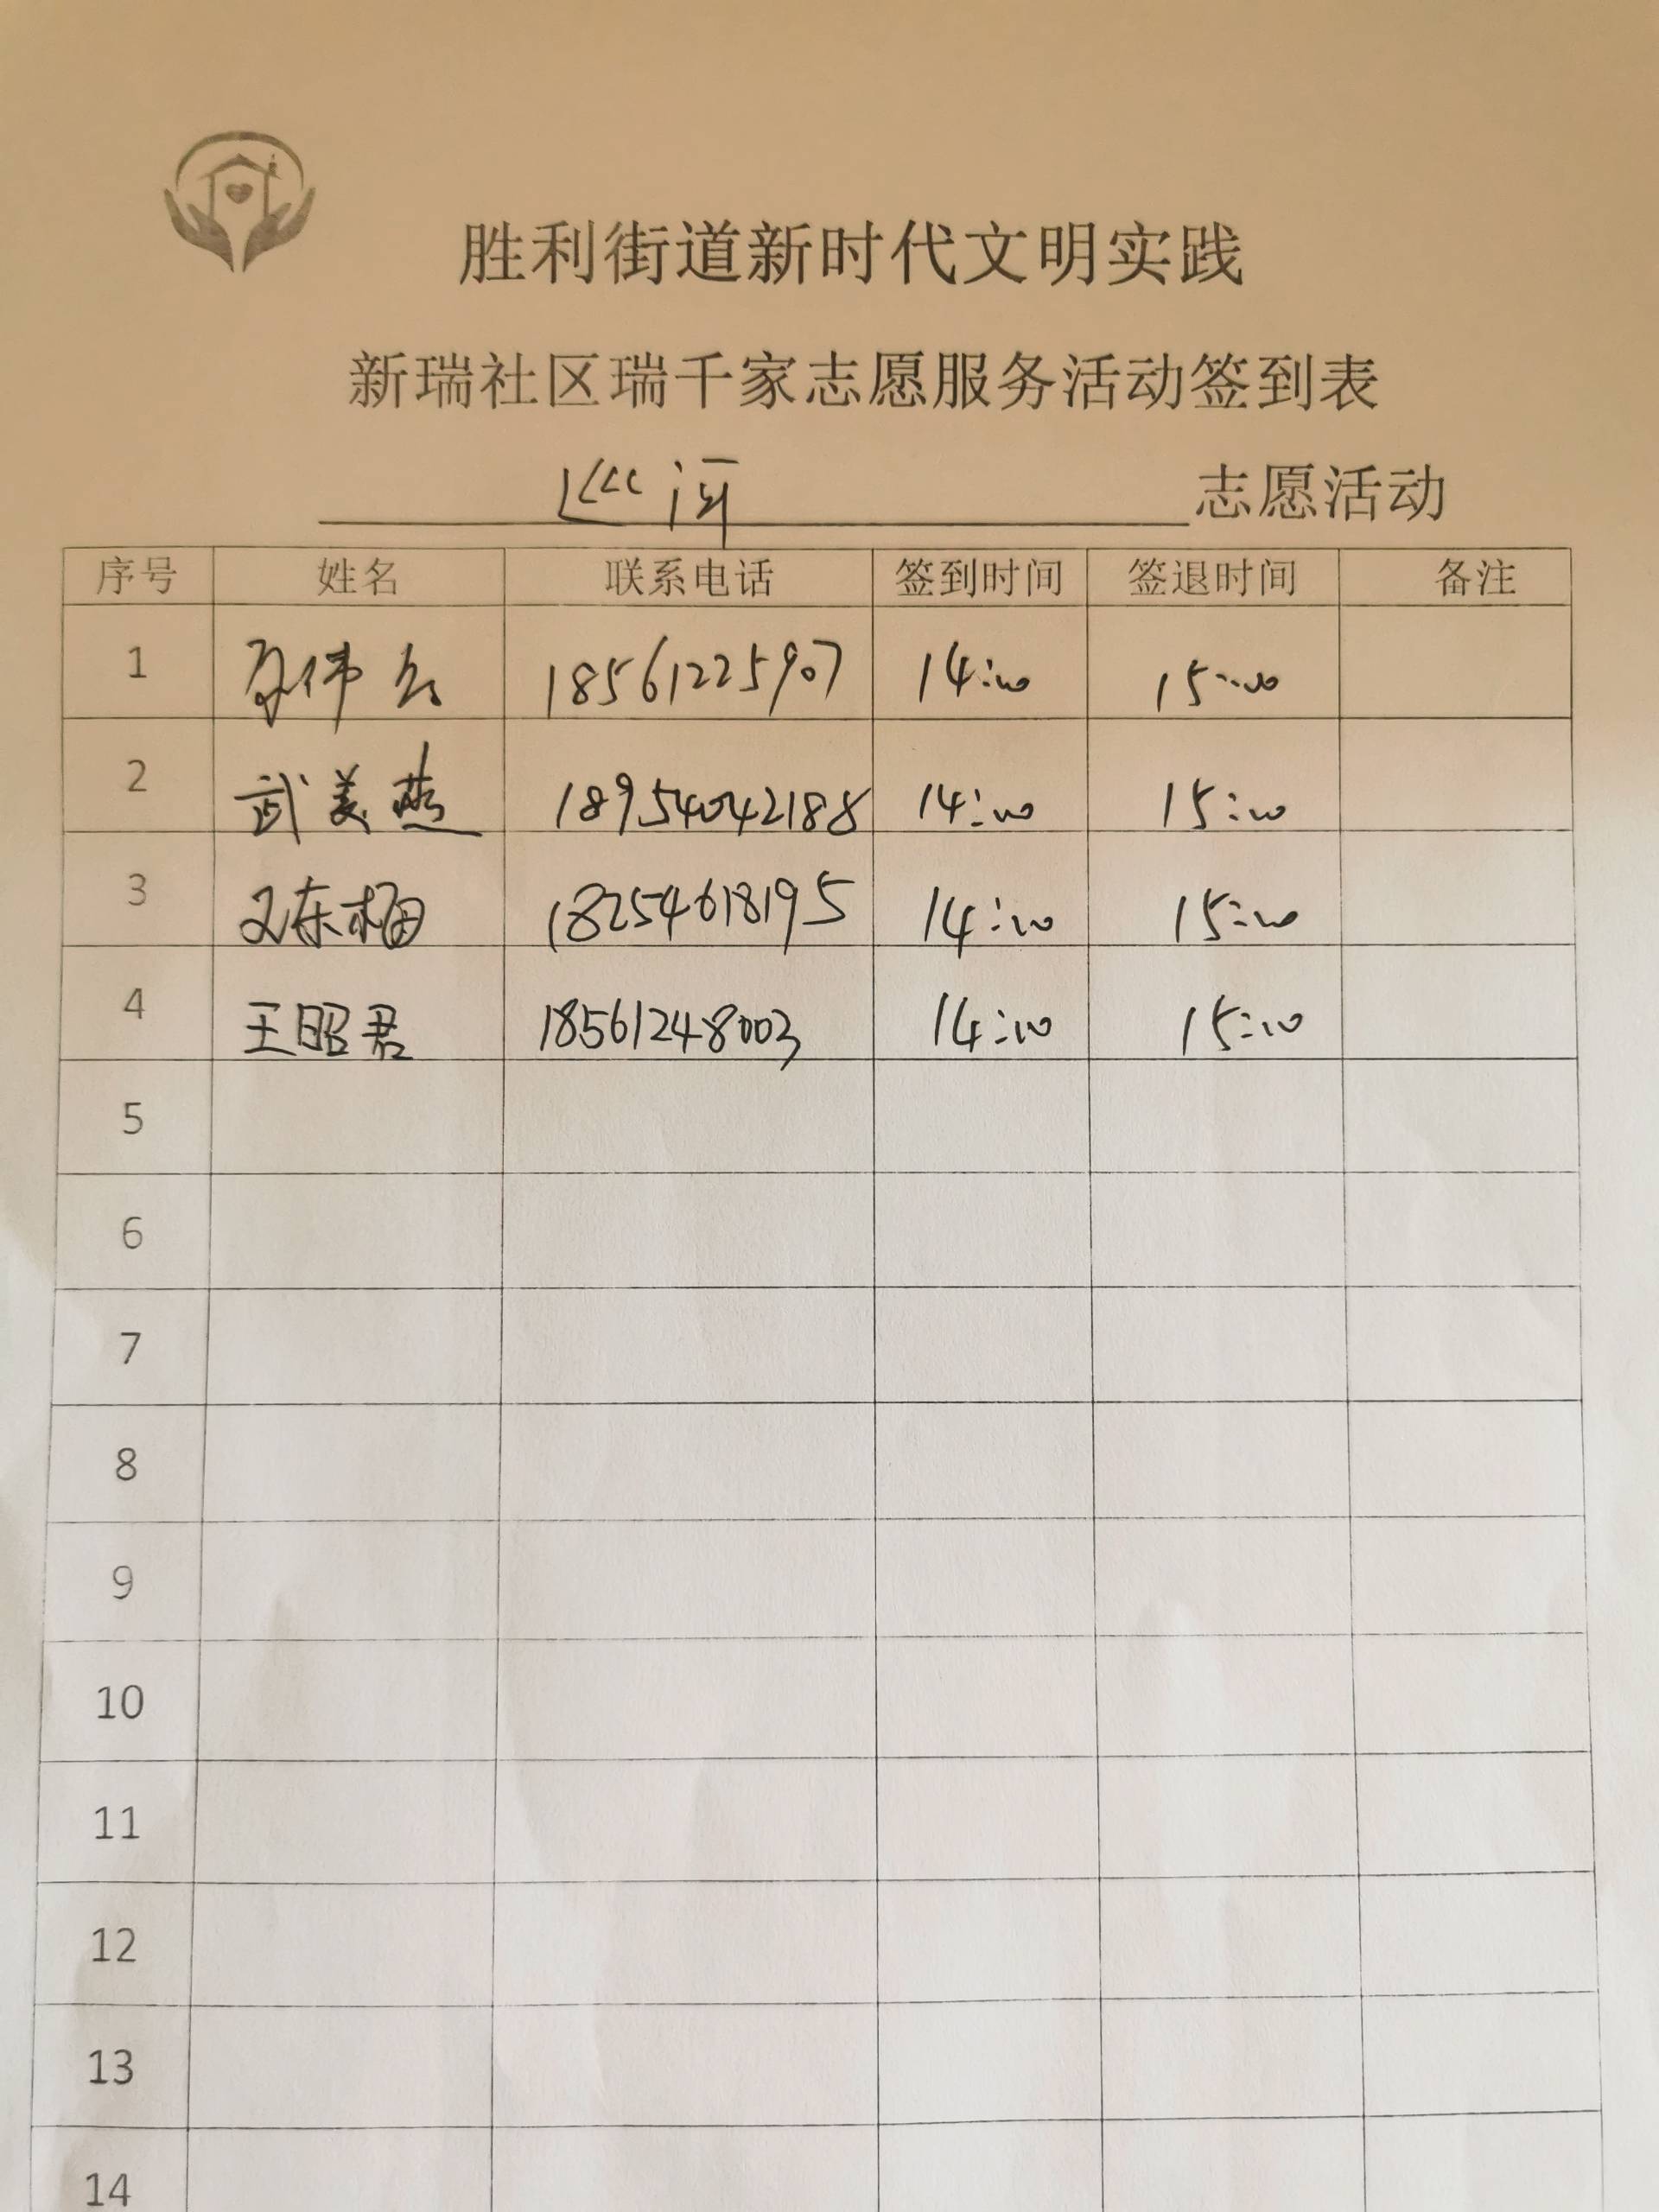 胜利街道新时代文明实践
新瑞社区瑞千家志愿服务活动签到表
巡河 志愿活动
序号 姓名 联系电话 签到时间 签退时间 备注
1 18561225907 14:00 15:00
2 武美燕 18954042188 14:00 15:00
3 东梅 18254618195 14:00 15:00
4 王昭君 18561248003 14:00 15:00
5
6
7
8
9
10
11
12
13
14